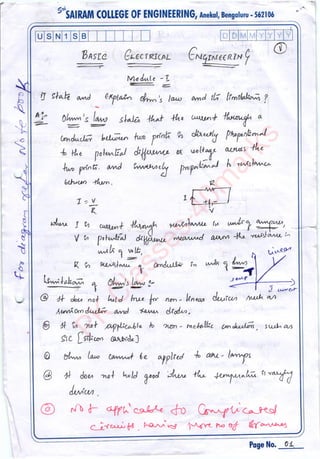 SAIRAM COLLEGE OF ENGINEERING, Anekal, Bengaluru - 562106
U S N 1 S B
D D M M Y Y Y Y
BASIC ELECTRICAL ENGINEERING
Module - I
1) State and explain Ohm's law and its limitations ?
A:- Ohm's law states that the current through a
conductor between two points is directly proportional
to the potential difference or voltage across the
two points. and inversely proportional to resistance
between them.
R
I = V
R
I
V
where I is current through resistance in units of amperes,
V is potential difference measured across the resistance in
units of volts,
R is resistance conductor in units of ohms
Linear
Limitations of Ohm's law :-
V
I
a It does not hold true for non-linear devices such as
semiconductor and zener diodes.
b It is not applicable to non-metallic conductors, such as
SiC [silicon carbide]
c Ohms law cannot be applied to arc-lamps
d It does not hold good where the temperature is varying
devices.
e Not applicable to Complicated
circuits. having More no of branches
For diagram refer Note book
Page No. 01